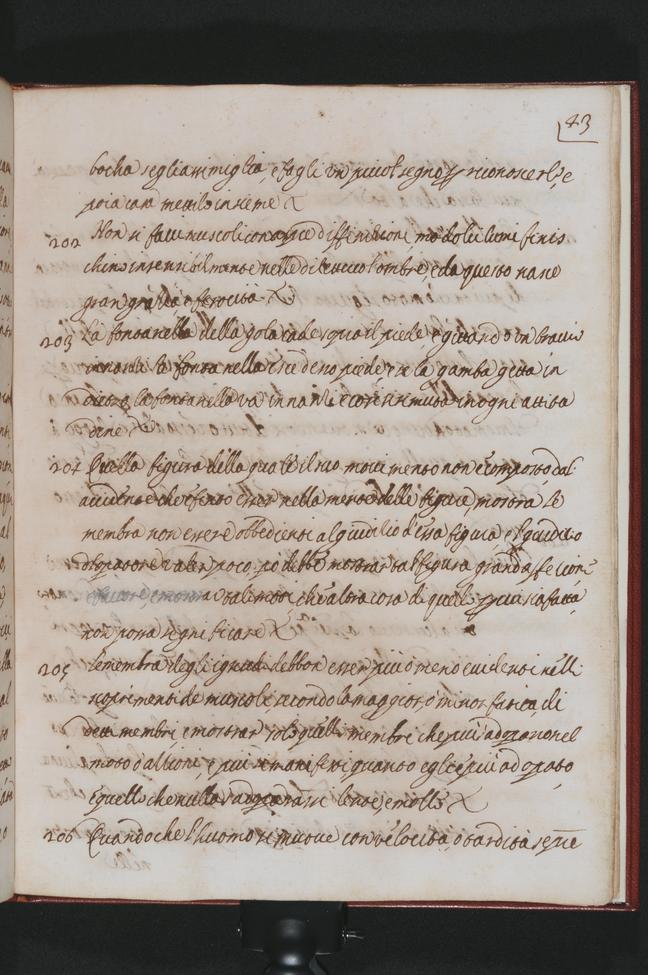 43
bocha se gli assimiglia, e fagli un picciol segno per riconoscerle, e
poi a casa metti lo insieme
202 Non si facci muscoli con aspre diffinitioni, ma dolci lumi finis
chino insensibilmente nelle dilettevoli ombre, e da questo nasce
gran gratia, e ferocità
203 La fontanella della gola cade sopra il piede, e gittando un braccio
innanzi la fontanella esce d'esso piede, e se la gamba getta in
dietro la fontanella va innanzi, e così si muta in ogni attitu
dine
204 Quella figura della quale il suo movimento non è composto dal
accidente che è finto esser nella mente delle figure, mostra le
membra non essere obbedienti al giuditio d'essa figura, e il giuditio
del pittore valer poco, però debbe mostrar tal figura grand'affettione
e mostrar tali moti che altra cosa di quello per cui sia fatta
non possa significare
205 Le membra degli ignudi debbon esser più o meno evidenti nelli
scoprimenti de muscoli secondo la maggior o minor fatica di
detti membri, e mostrar solo quelli membri che più s'adoprano nel
moto d'attione, e più si manifesti quanto egli è più adoprato
e quello che nulla s'adopra resti lento, e molle
206 Quando che l'huomo si muove con velocità, o tardità sempre
nelle